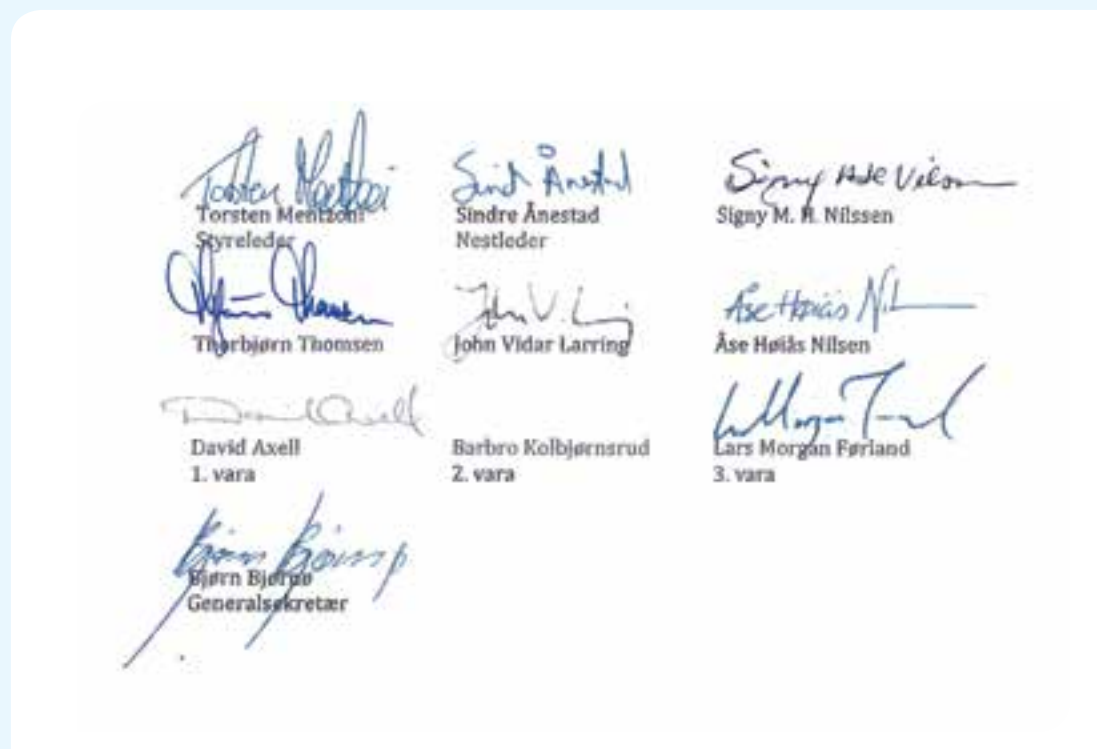 Torsten Mentzoni
Styreleder
Sindre Ånestad
Nestleder
Signy M. H. Nilssen
Thorbjørn Thomsen
John V. L
John Vidar Larring
Åse Høiås Nilsen
David Axell
David Axell
1. vara
Barbro Kolbjørnsrud
2. vara
Lars Morgan Førland
3. vara
Bjørn Bjørnø
Generalsekretær